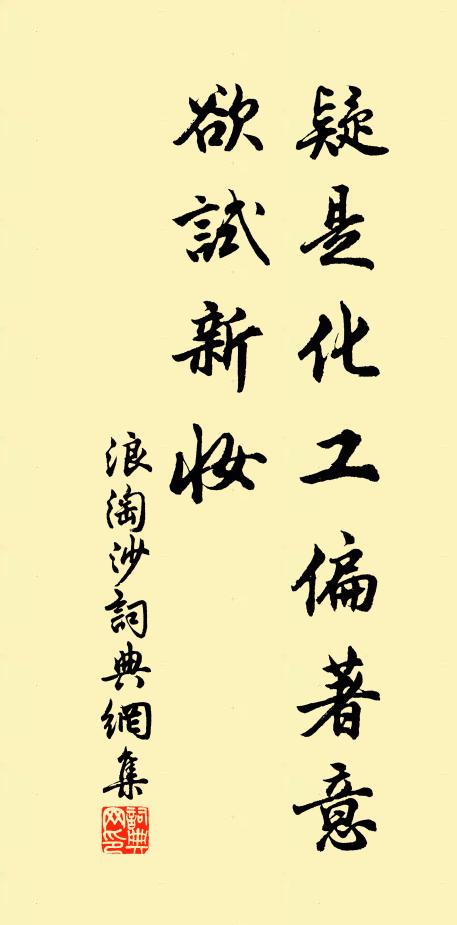 疑是化工偏著意
欲試新妝
浪淘沙詞典網集
詞典网印